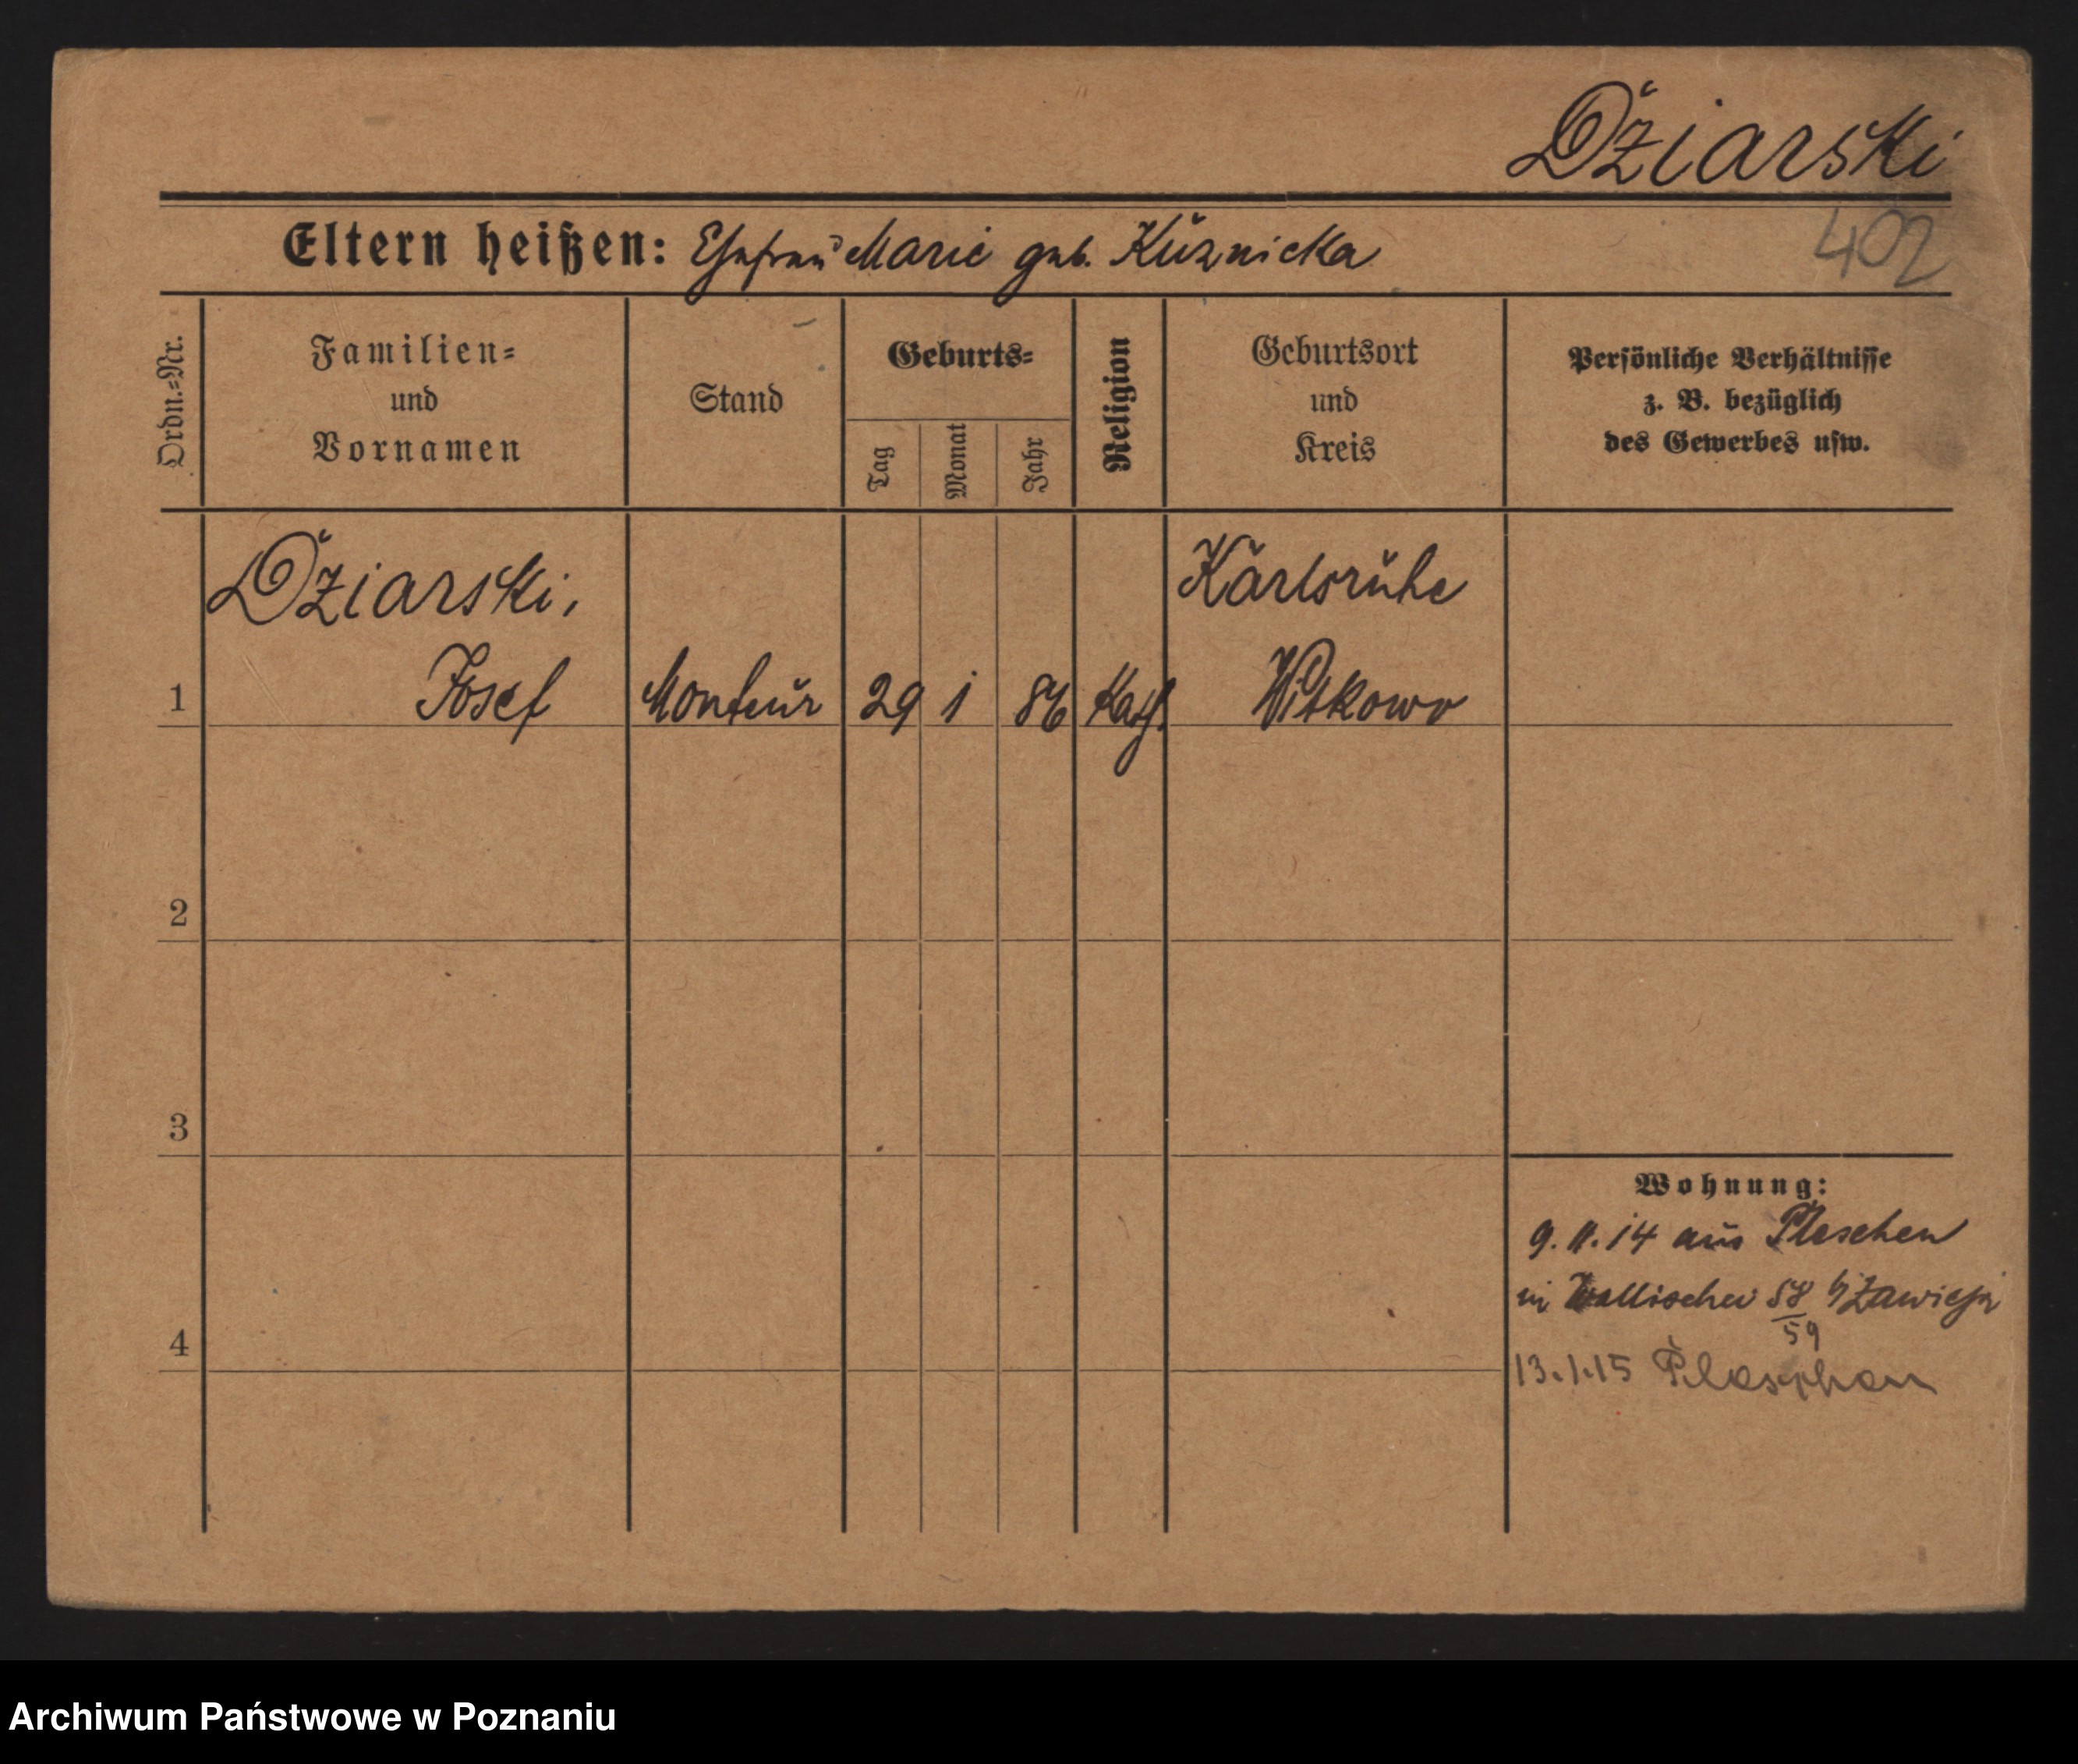 Dziarski
Eltern heißen: Ehefrau Marie geb. Kuznicka
402
Ordn.=Nr.
Familien=
und
Vornamen
Stand
Geburts=
Tag
Monat
Jahr
Religion
Geburtsort
und
Kreis
Persönliche Verhältnisse
z. B. bezüglich
des Gewerbes usw.
Dziarski,
Karlsruhe
1 Josef Monteur 29 1 86 Kath. Witkowo
2
3
4
Wohnung:
9. 11. 14 aus Pleschen
in Wallischei 58/59 b/ Zawieja
13.1.15 Pleschen
Archiwum Państwowe w Poznaniu